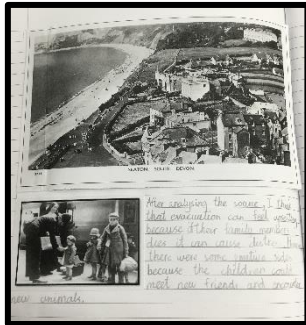 SEATON SOUTH DEVON
After analysing the source, I think
that evacuation can feel upsetting
because if their family member
dies it can cause
there were some positive sides
because the children could
meet new friends and encounter
new animals.